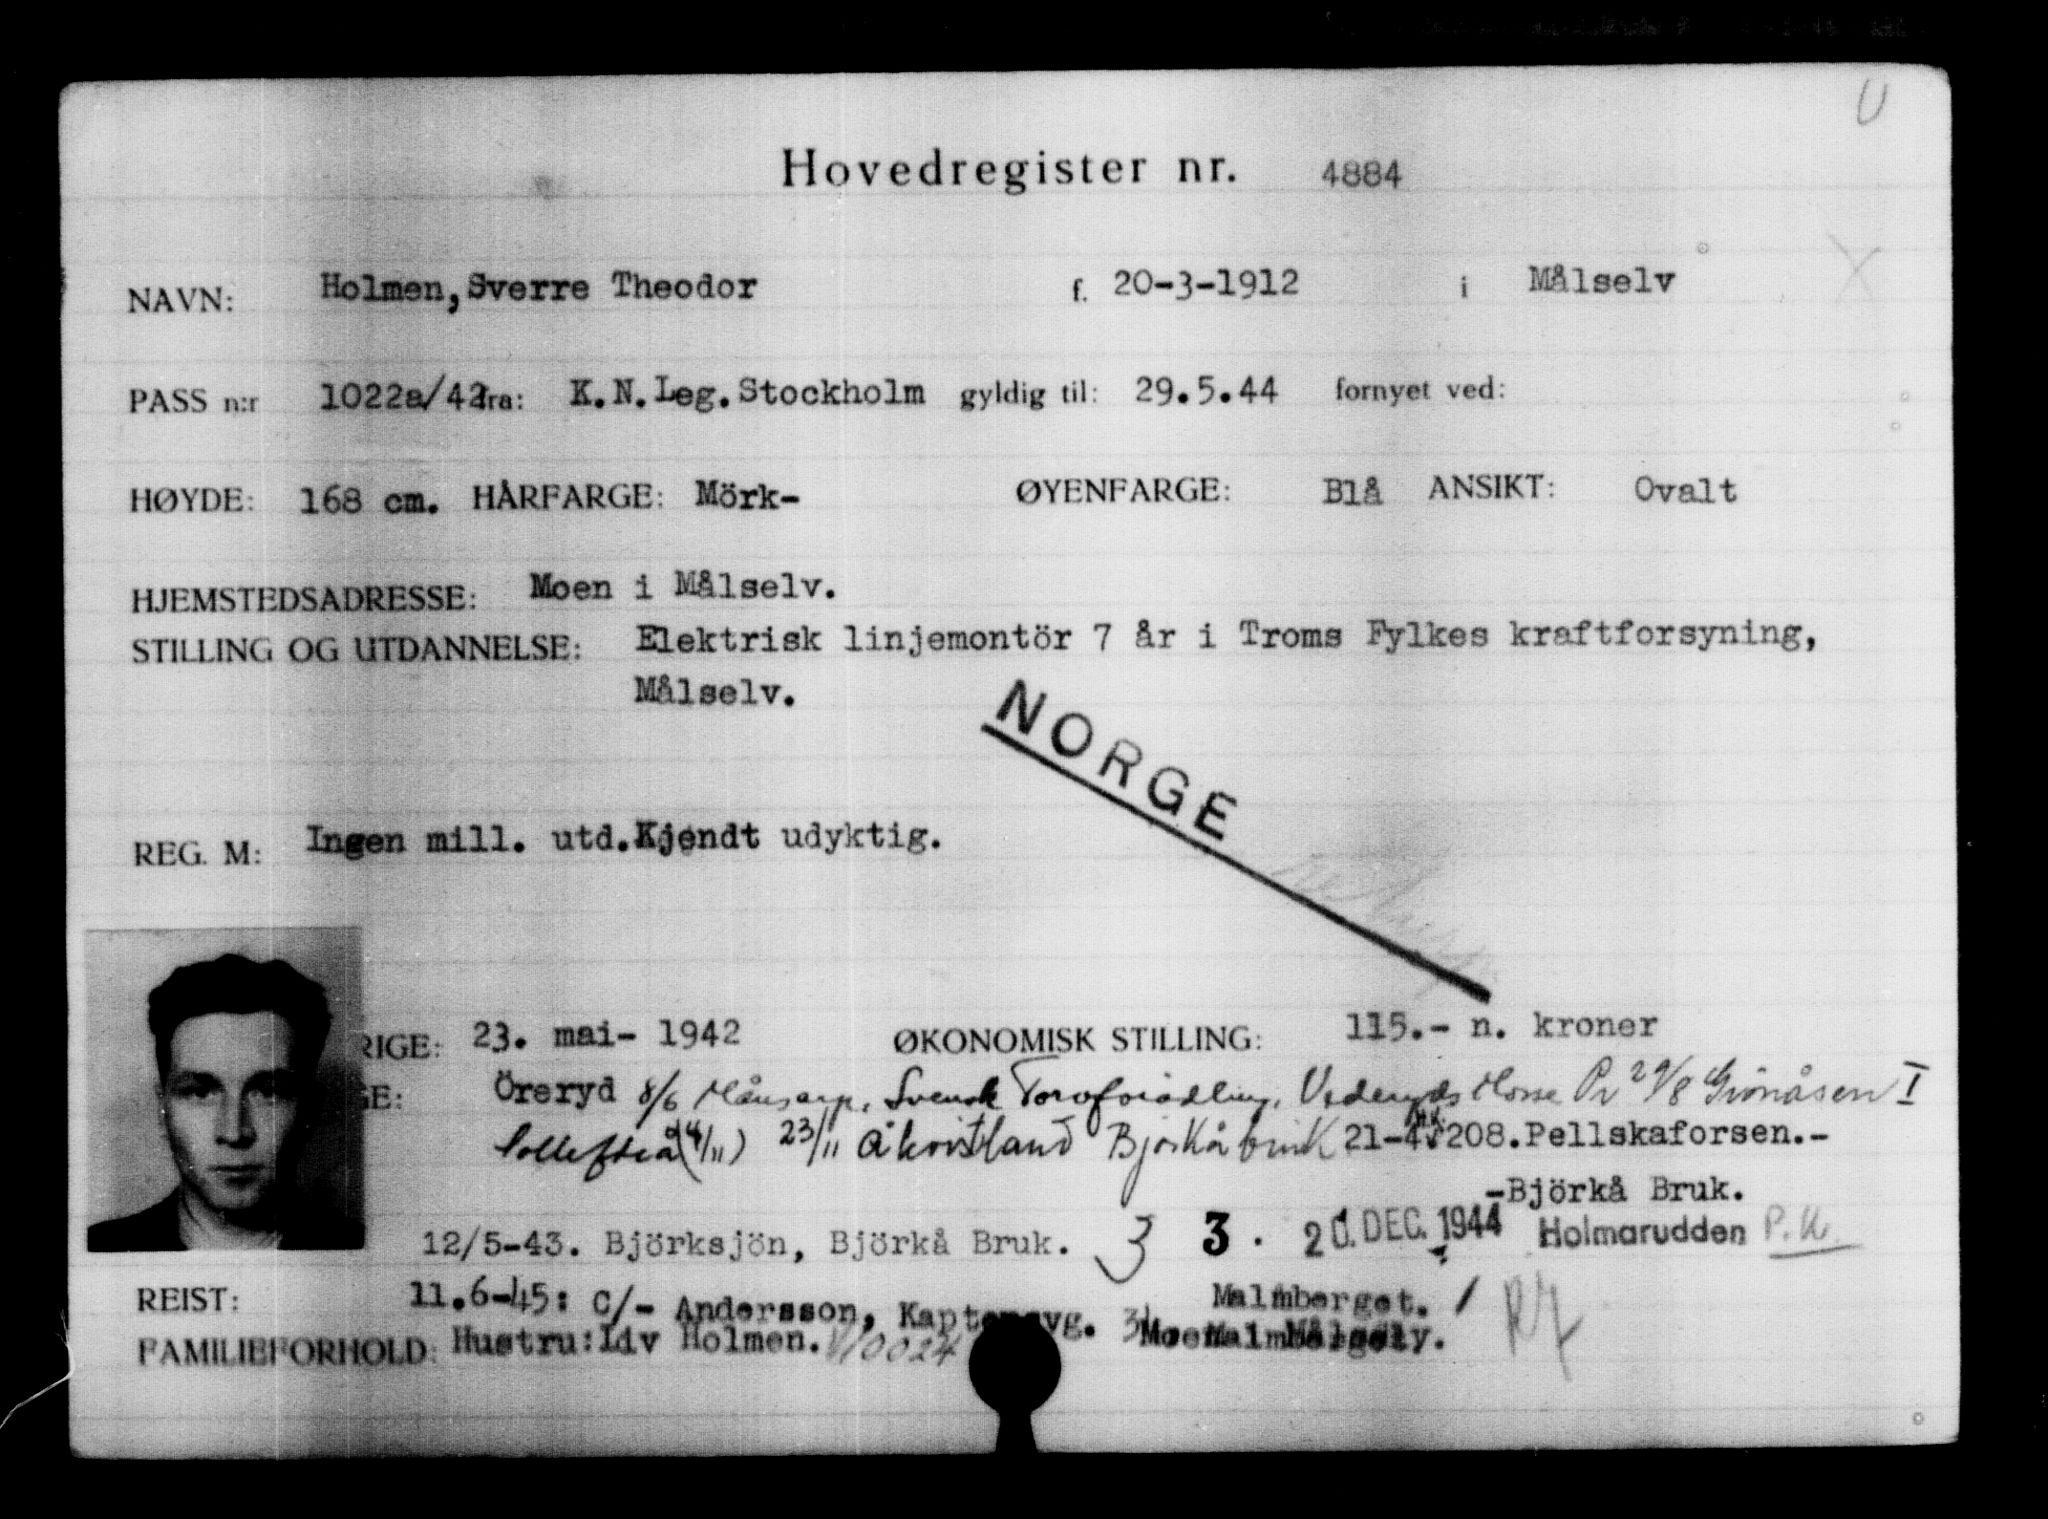 U
Hovedregister nr. 4884
NAVN: Holmen, Sverre Theodor f. 20-3-1912 i Målselv
PASS n:r 1022a/42 fra: K.N.Leg.Stockholm gyldig til: 29.5.44 fornyet ved:
HØYDE: 168 cm. HÅRFARGE: Mörk- ØYENFARGE: Blå ANSIKT: Ovalt
HJEMSTEDSADRESSE: Moen i Målselv.
STILLING OG UTDANNELSE: Elektrisk linjemontör 7 år i Troms Fylkes kraftforsyning,
Målselv.
NORGE
REG. M: Ingen mill. utd.Kjendt udyktig.
RIGE: 23. mai- 1942 ØKONOMISK STILLING: 115.- n. kroner
GE: Öreryd 8/6 Månsarp, Svensk Torvforädling, Mosse 29/8 I
Sollefteå (4/11) 23/11 Åkvistland Björkåbruk 21-4. 208.Pellskaforsen.-
-Björkå Bruk.
12/5-43. Björksjön, Björkå Bruk. 3 3. 20. DEC. 1944 Holmarudden P.K.
REIST: 11.6-45: C/- Andersson, Malmberget.
FAMILIEFORHOLD: Hustru: Liv Holmen. Moen Målselv.